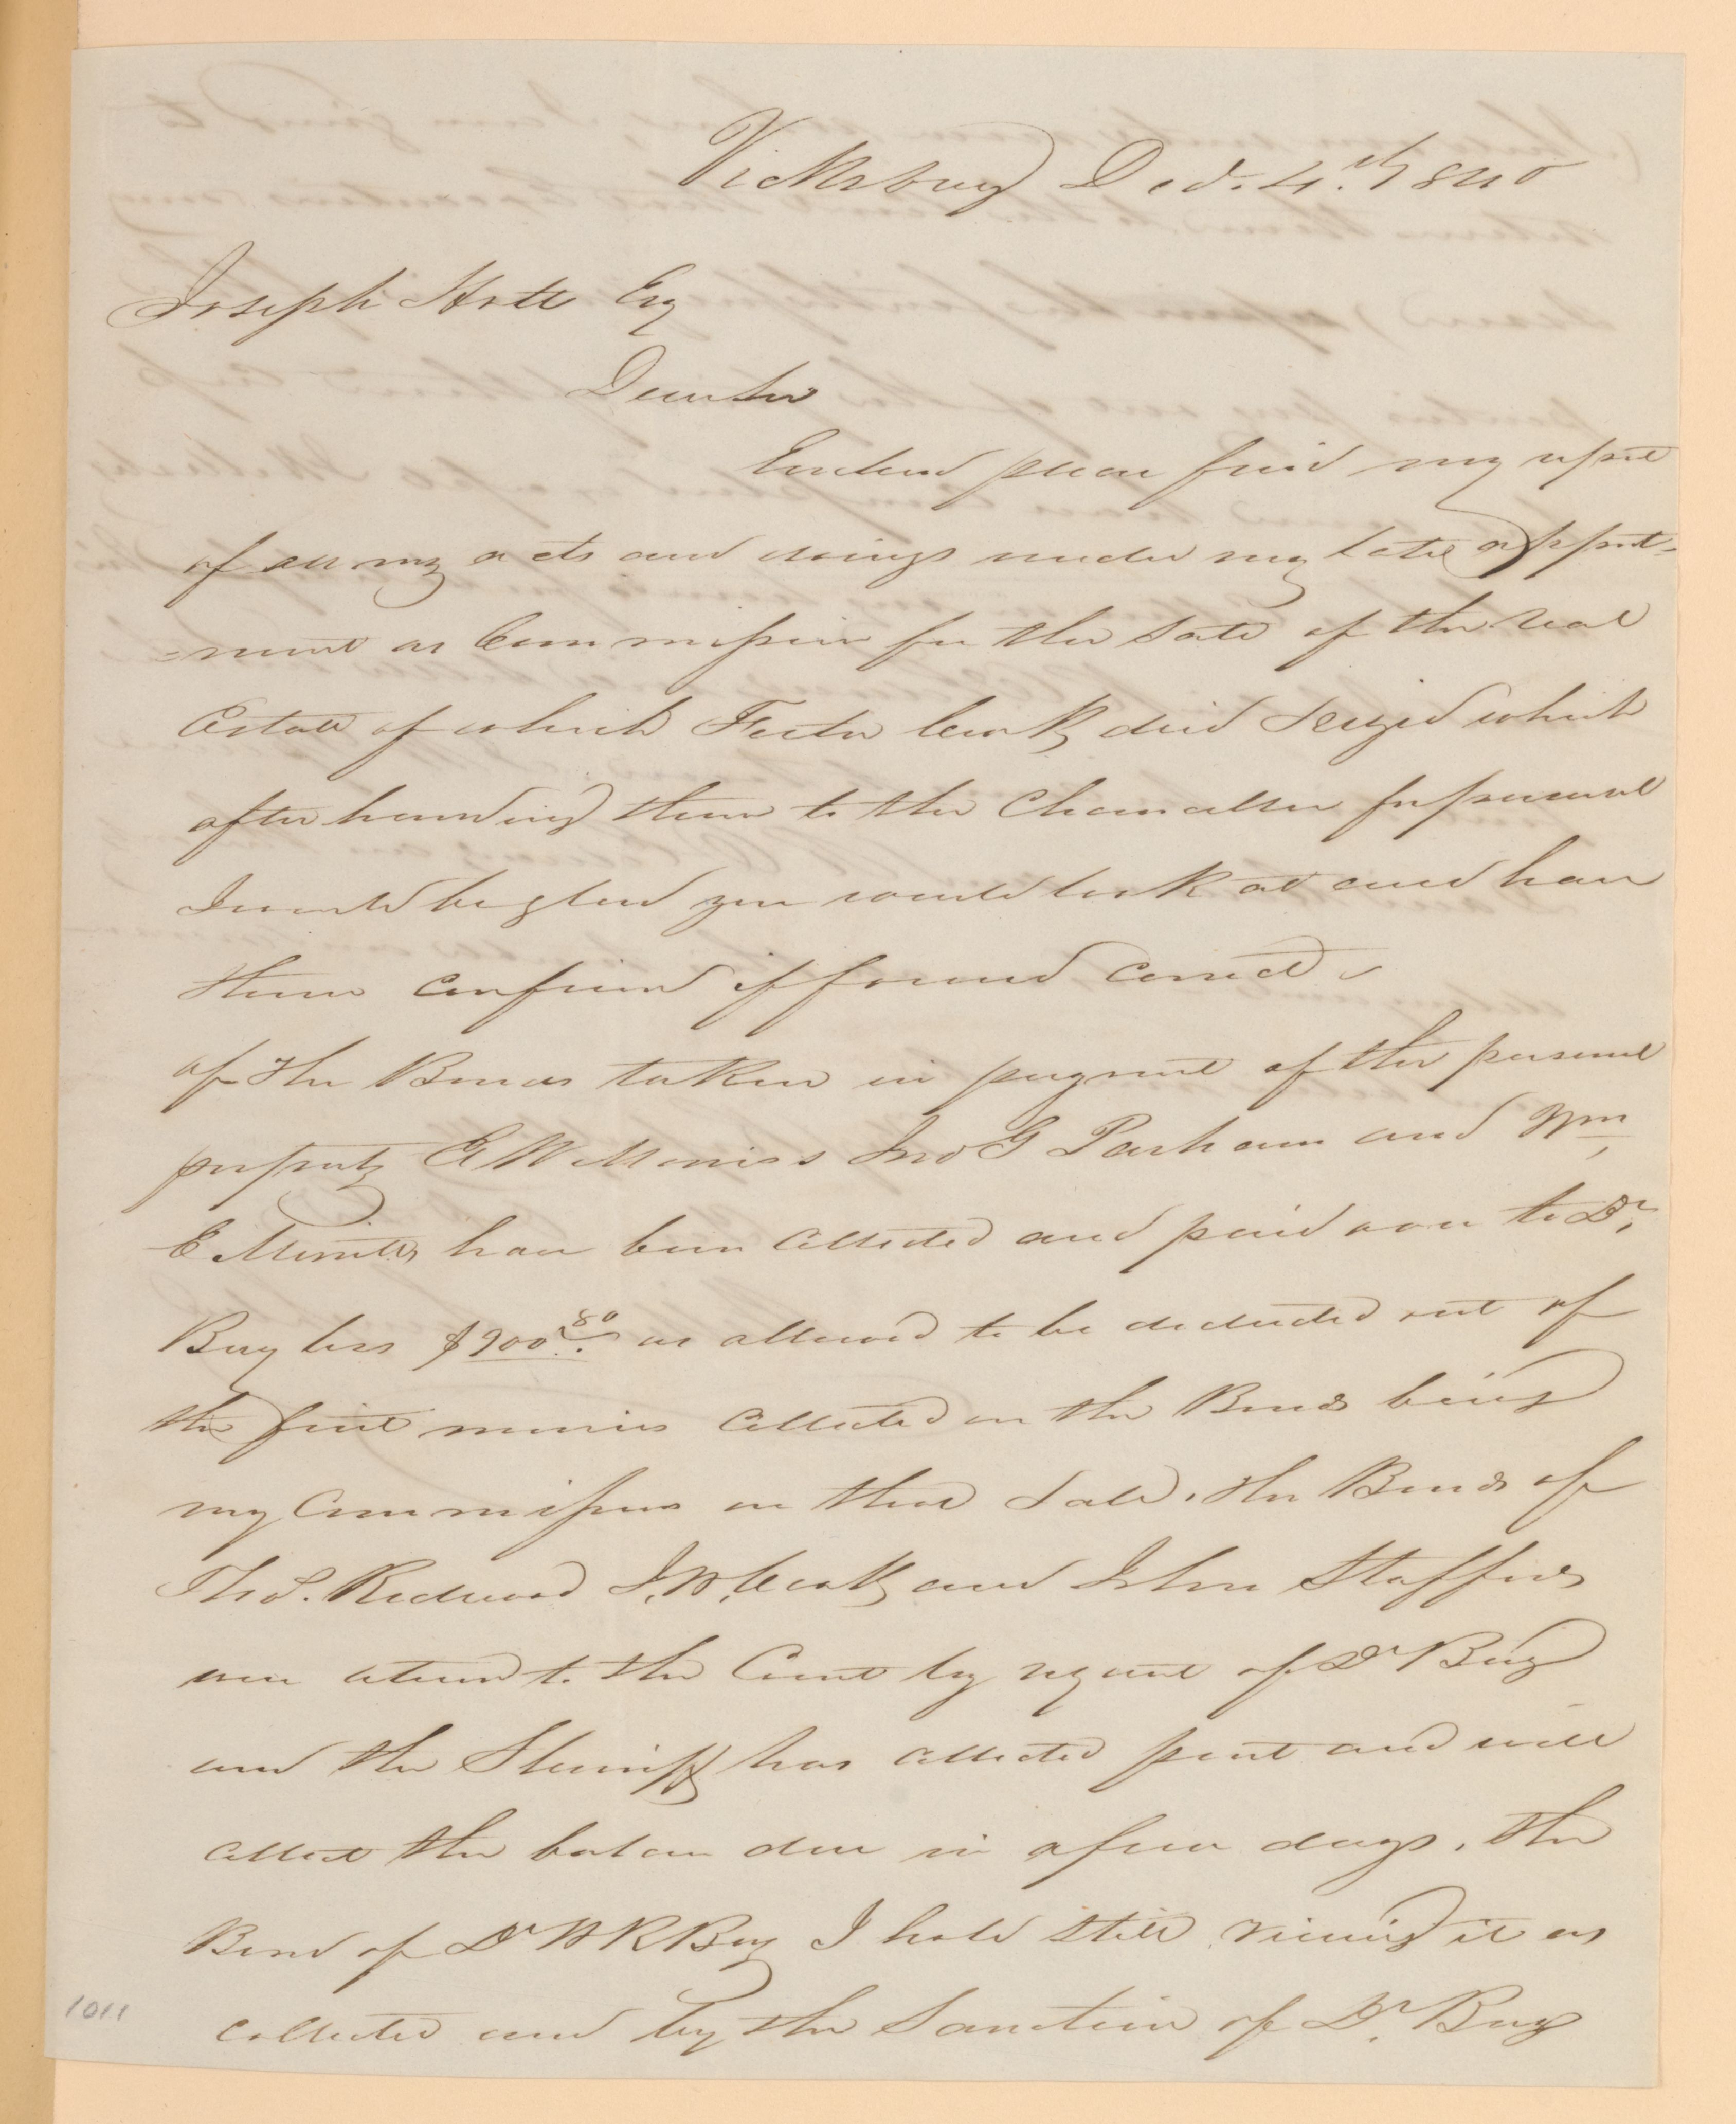 Vicksburg Decr. 4th 1840
Joseph Holt Esq
Dear Sir
Enclosed please find my report
of all my acts and doings under my late appoint-
=ment as Commissioner for the Sale of the real
Estate of which Foster Cook died Seized which
after handing them to the Chancellor for perusal
I would be glad you would look at and have
them confirmed if found correct
of the Bonds taken in payment of the personal
property E W Morris Jno G Parham and Wm
E have been collected and paid over to Dr.
Buy less $900 80 as allowed to be deducted out of
the first monies collected on the Bonds being
my Commissions on that Sale. the Bonds of
Thos. Redwood J. W. Cook and John Stafford
were returned to the Court by request of Dr Buy
and the Sheriff has collected part and will
collect the balance due in a few days. the
Bond of Dr W R Buy I hold still viewing it as
collected and by the Sanction of Dr. Buy
1011